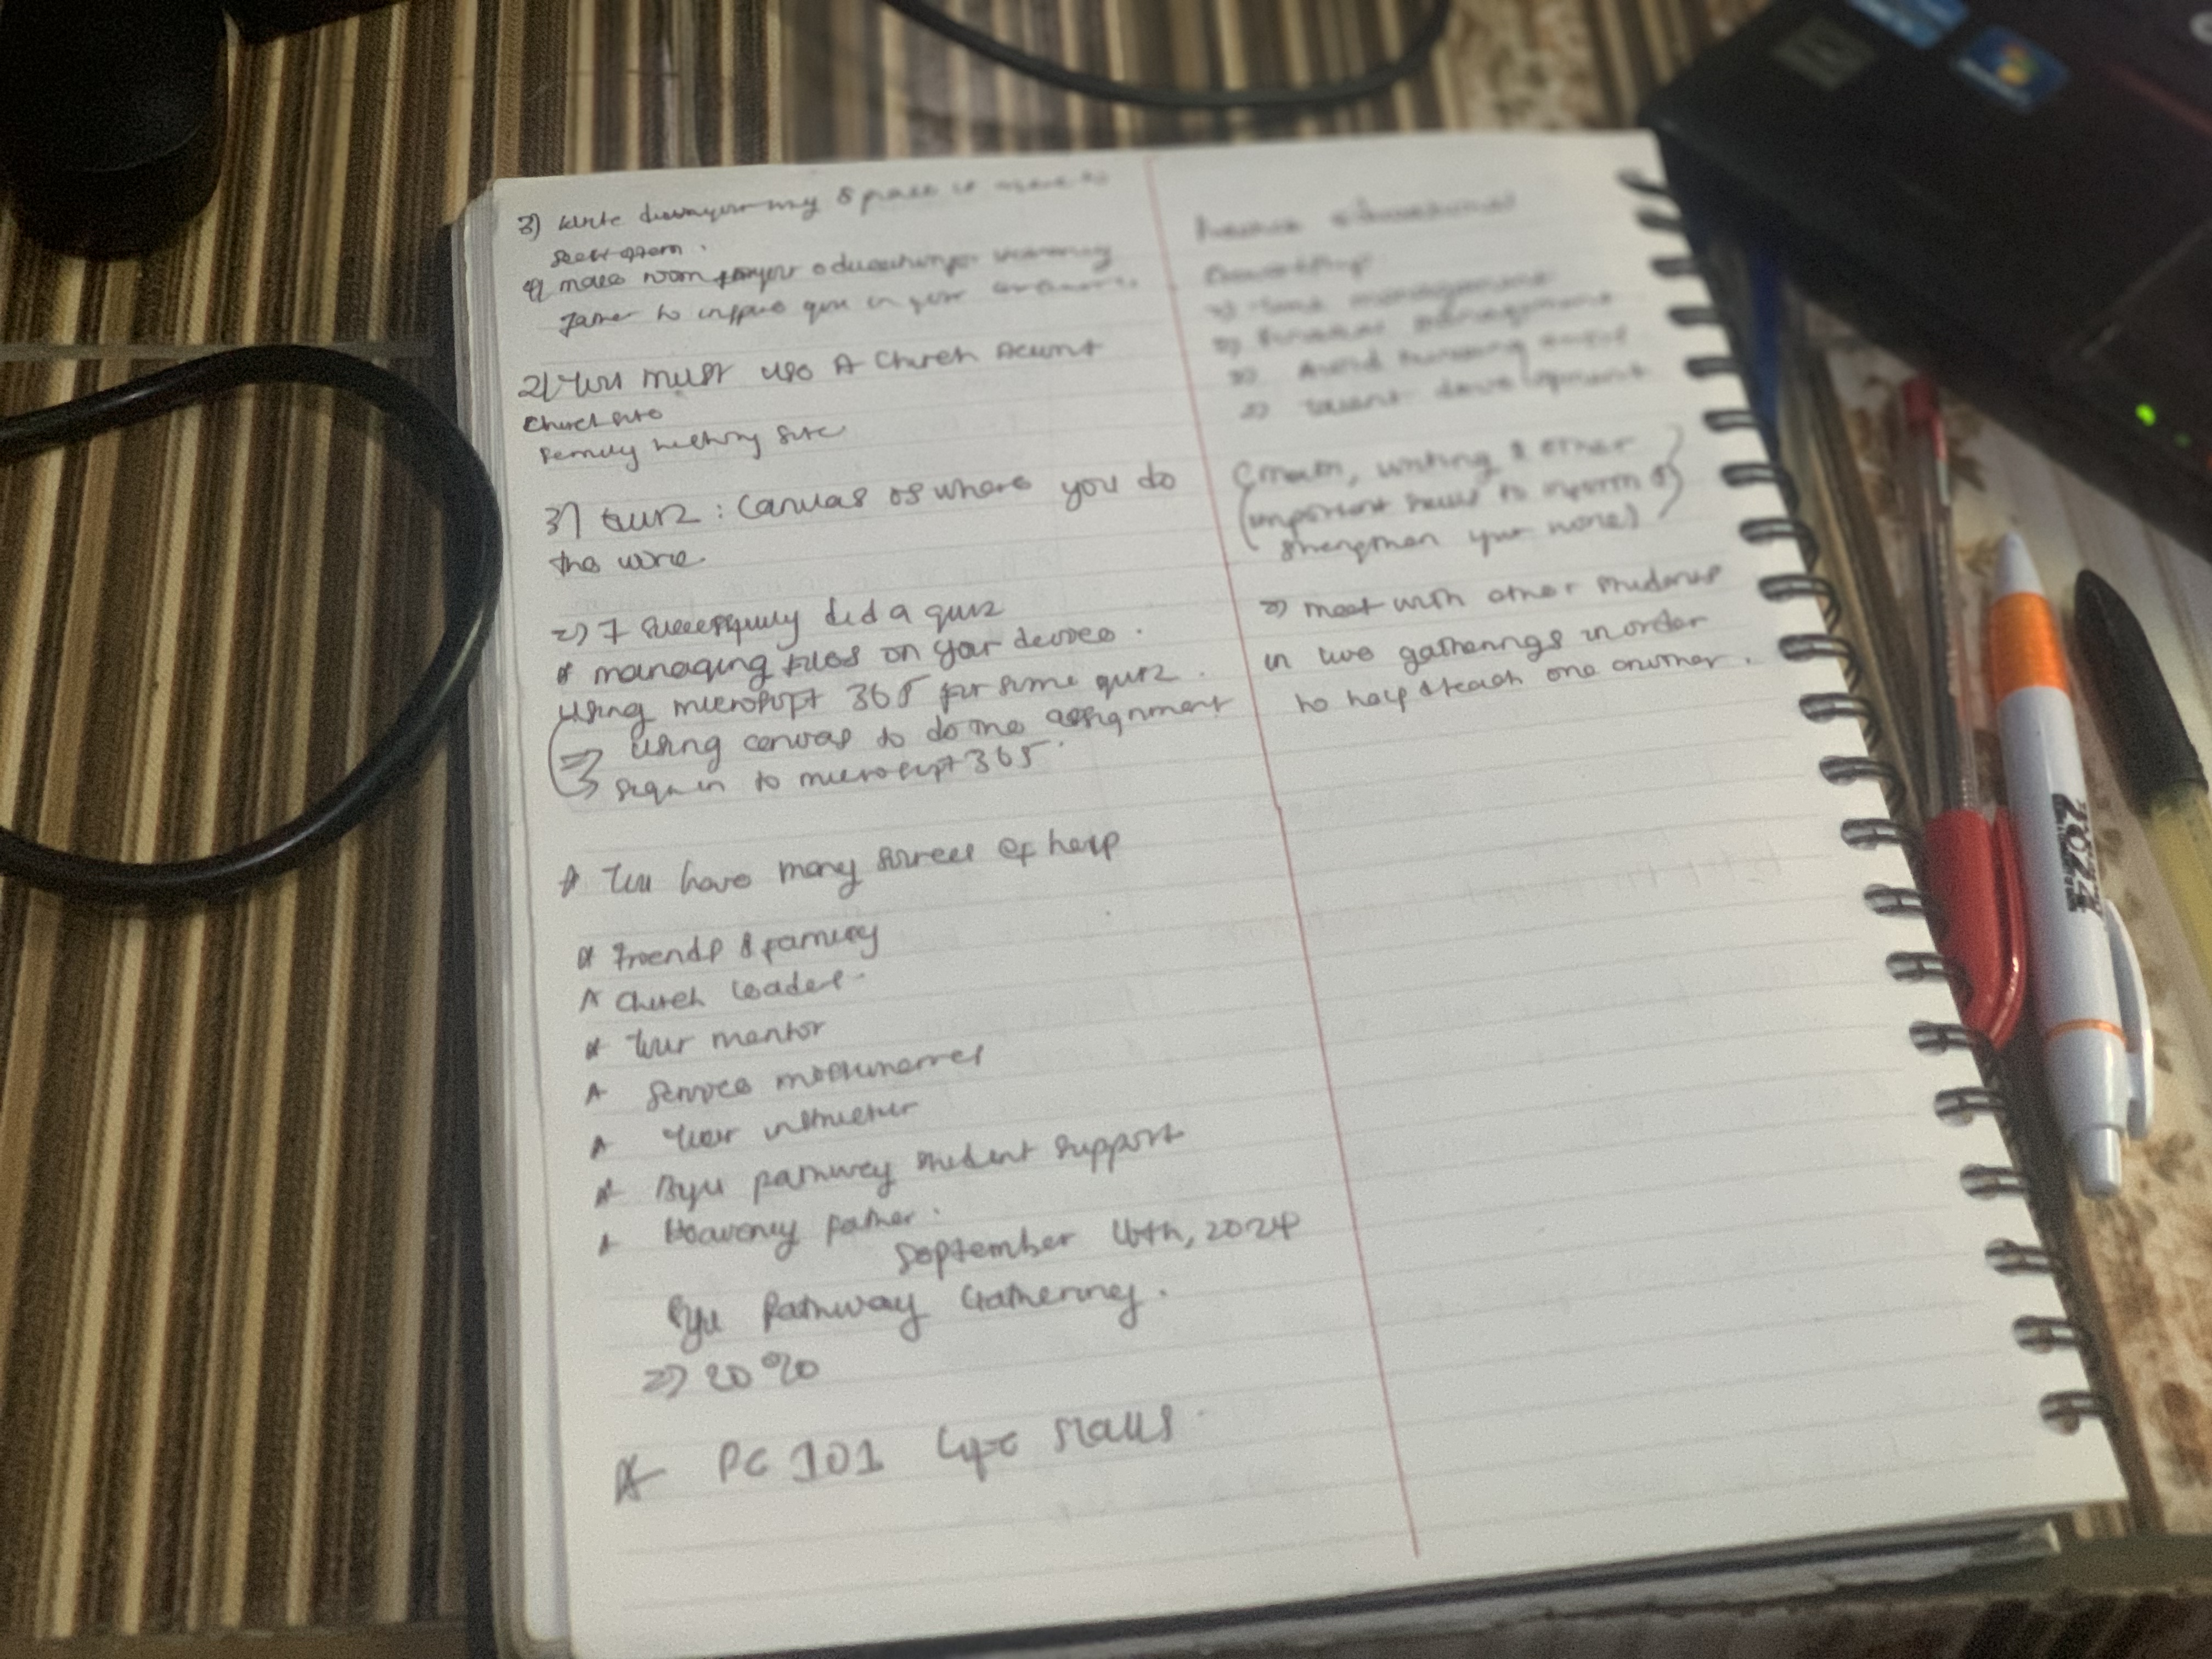 3) write down your
4) make room for your education for Heavenly
Father to inspire you in your
2) You must use A Church Account
Church site
Family history site
3) Quiz : Canvas is where you do
the work
=) I successfully did a quiz
* managing files on your devices.
using microsoft 365 for some quiz.
=) using canvas to do the assignment
sign in to microsoft 365.
* You have many sources of help
* Friends & family
* Church leaders
* Your mentor
* Service missionaries
* Your instructor
* Byu pathway student support
* Heavenly father.
September 16th, 2024
Byu Pathway Gathering.
=) 20%
* PC 101 Life skills.
=) Time management
=) Financial management
=) Avoid
=) Talent development
(math, writing & other
important skills to inform &
strengthen your
=) meet with other students
in two gatherings in order
to help & teach one another.